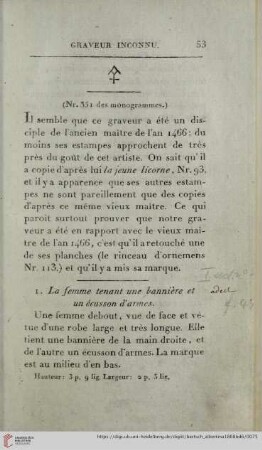 GRAVEUR INCONNU. 53
(Nr. 351 des monogrammes.)
Il semble que ce graveur a été un dis-
ciple de l'ancien maitre de l'an 1466; du
moins ses estampes approchent de très
près du goût de cet artiste. On sait qu'il
a copié d'après lui la jeune licorne, Nr. 93.
et il y a apparence que ses autres estam-
pes ne sont pareillement que des copies
d'après ce même vieux maitre. Ce qui
paroit surtout prouver que notre gra-
veur a été en rapport avec le vieux mai-
tre de l'an 1466, c'est qu'il a retouché une
de ses planches (le rinceau d'ornemens
Nr. 113.) et qu'il y a mis sa marque.
1. La femme tenant une bannière et
un écusson d'armes.
Une femme debout, vue de face et vê-
tue d'une robe large et très longue. Elle
tient une bannière de la main droite, et
de l'autre un écusson d'armes. La marque
est au milieu d'en bas.
Hauteur: 3 p. 9 lig. Largeur: 2 p. 5 lig.